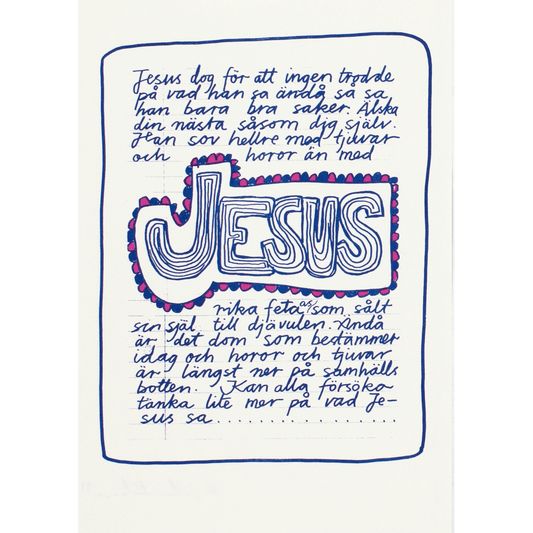 Jesus dog för att ingen trodde
på vad han sa ändå så sa
han bara bra saker. Älska
din nästa såsom dig själv.
Han sov hellre med tjuvar
och horor än med
JESUS
rika feta as som sålt
sin själ till djävulen. Ändå
är det dom som bestämmer
idag och horor och tjuvar
är längst ner på samhälls
botten. Kan alla försöka
tänka lite mer på vad Je-
sus sa....................